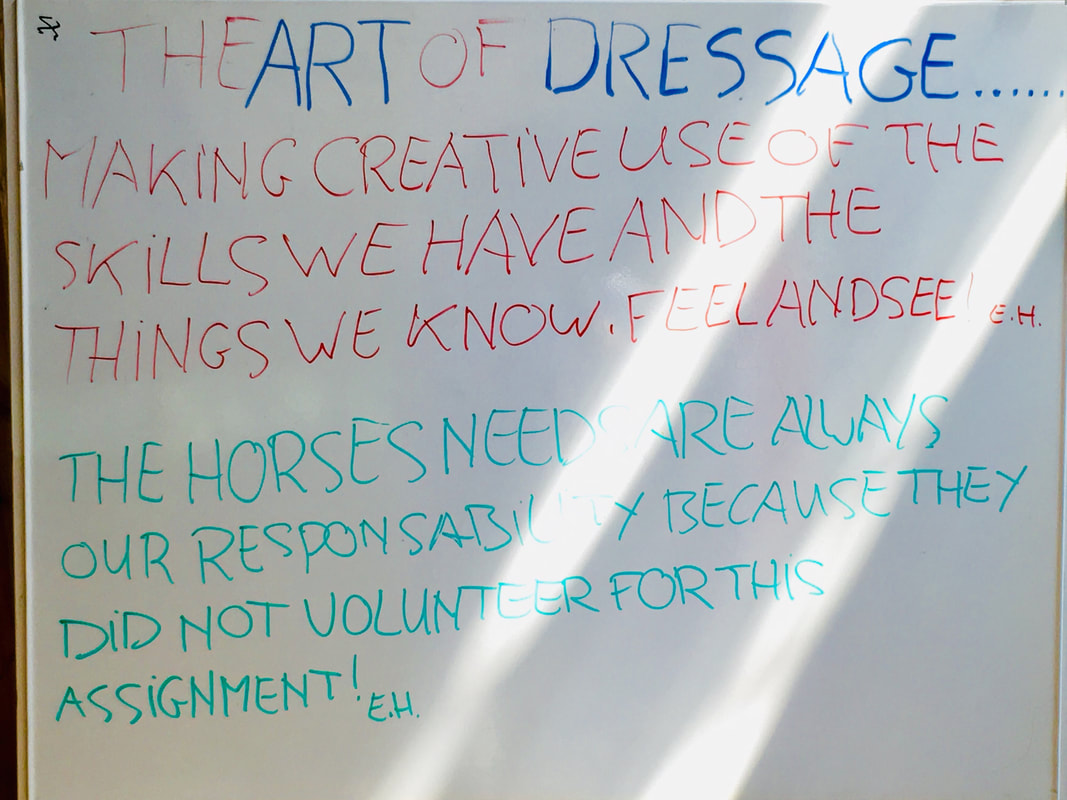 THE ART OF DRESSAGE......
MAKING CREATIVE USE OF THE
SKILLS WE HAVE AND THE
THINGS WE KNOW. FEEL AND SEE! E.H.
THE HORSES NEEDS ARE ALWAYS
OUR RESPONSABILITY BECAUSE THEY
DID NOT VOLUNTEER FOR THIS
ASSIGNMENT! E.H.